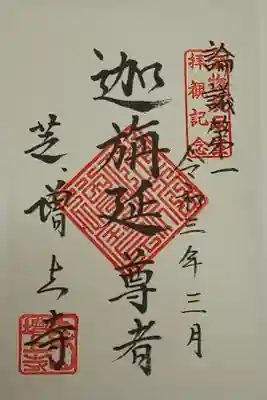 論議第一
拝観記念
令和三年三月
迦旃延尊者
芝、増上寺